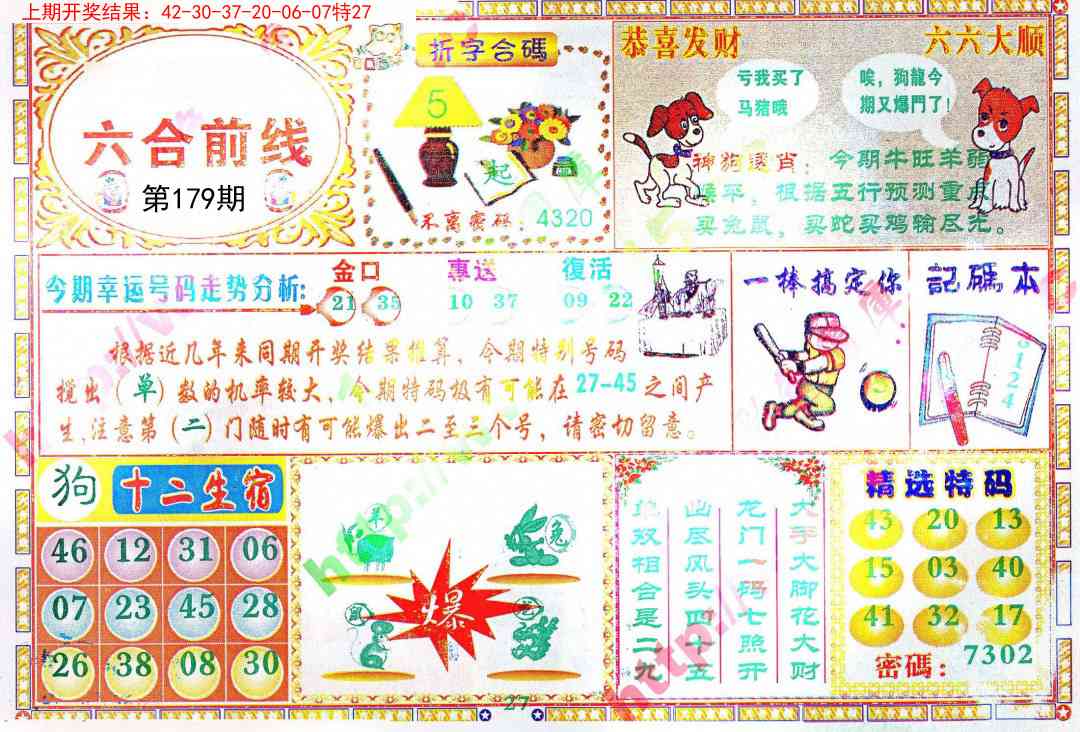 上期开奖结果：42-30-37-20-06-07特27
六合前线
第179期
折字合碼
5
起
不离密码：4320
恭喜发财
六六大顺
亏我买了
马猪哦
唉，狗龍今
期又爆門了！
神狗透肖：今期牛旺羊弱
猴平，根据五行预测重点
买兔鼠，买蛇买鸡输尽光。
今期幸运号码走势分析：
金口
21 35
惠送
10 37
復活
09 22
根据近几年来同期开奖结果推算、今期特别号码
搅出（单）数的机率较大、今期特码极有可能在27-45之间产
生，注意第（二）门随时有可能爆出二至三个号，请密切留意。
一棒搞定你
5
記碼本
0124
狗
十二生宿
46 12 31 06
07 23 45 28
26 38 08 30
羊
兔
鼠
爆
大手大脚花大财
龙门一码七照开
幽尽风头四十五
地双相合是二九
精选特码
43 20 13
15 03 40
41 32 17
密碼：7302
27